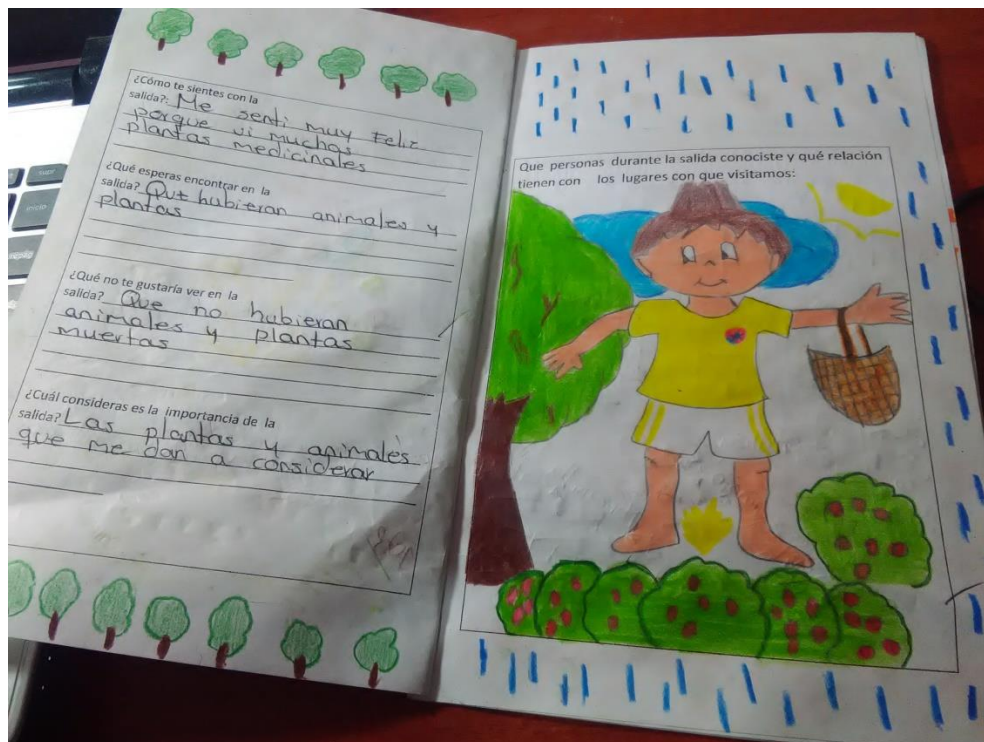 ¿Cómo te sientes con la
salida?: Me senti muy Feliz
porque vi muchas
plantas medicinales
¿Qué esperas encontrar en la
salida? Que hubieran animales y
plantas
¿Qué no te gustaría ver en la
salida? Que no hubieran
animales y plantas
muertas
¿Cuál consideras es la importancia de la
salida? Las plantas y animales
que me dan a considerar
Que personas durante la salida conociste y qué relación
tienen con los lugares con que visitamos: